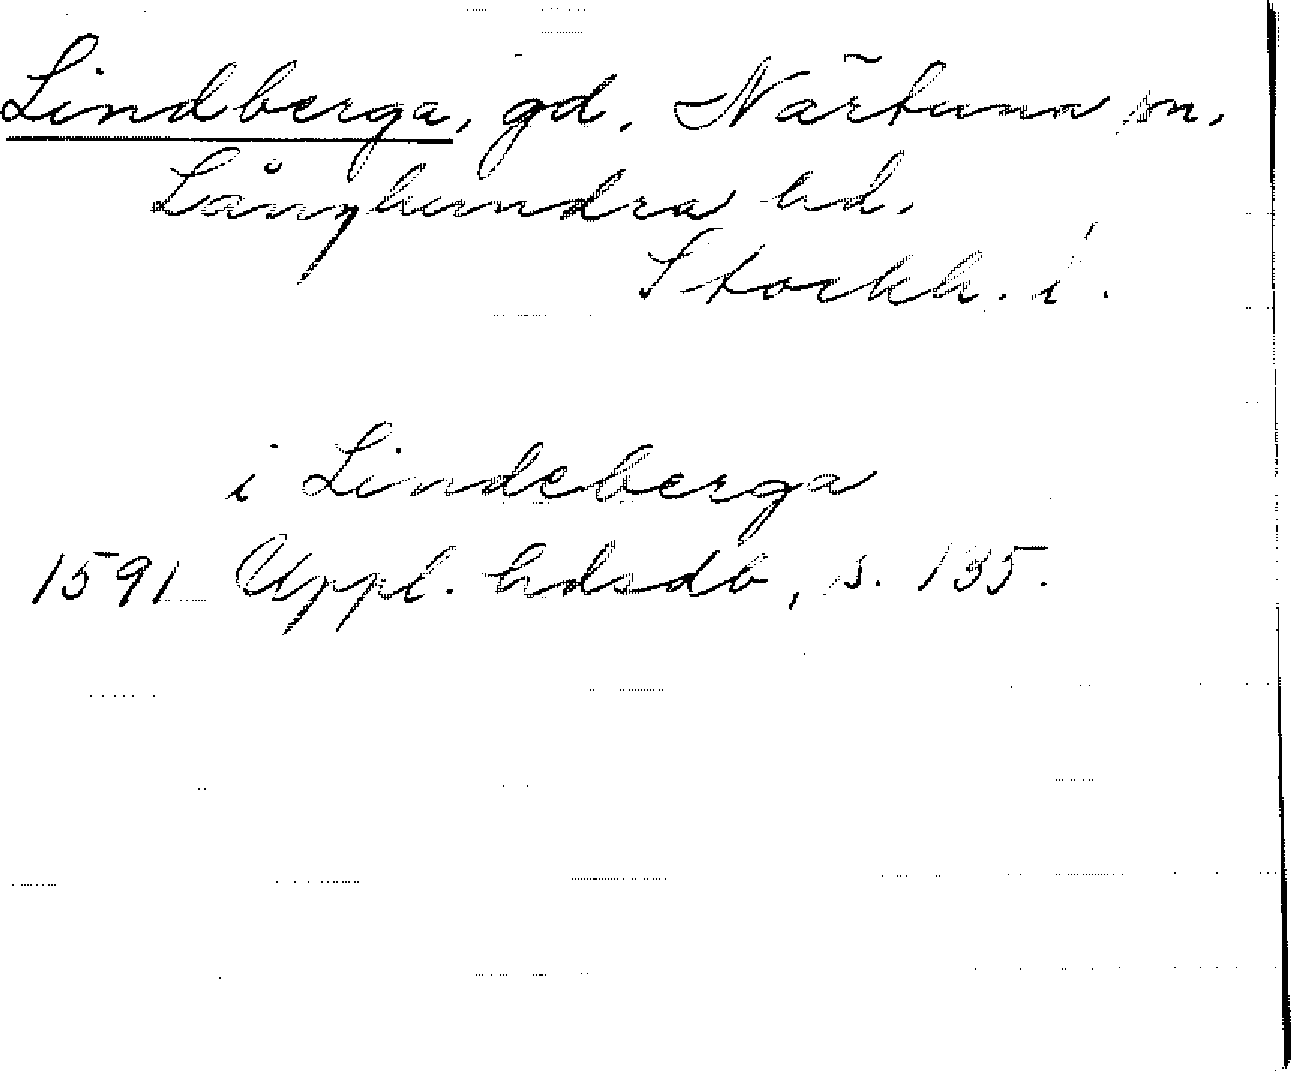 Lindberga, gd. Närtuna sn.
Långhundra hd.
Stockh. l.
i Lindeberga
1591 Uppl. hdsdb, s. 135.